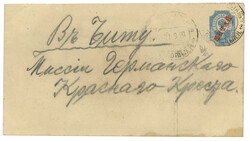 Въ Читу.
Миссіи Германскаго
Краснаго Креста